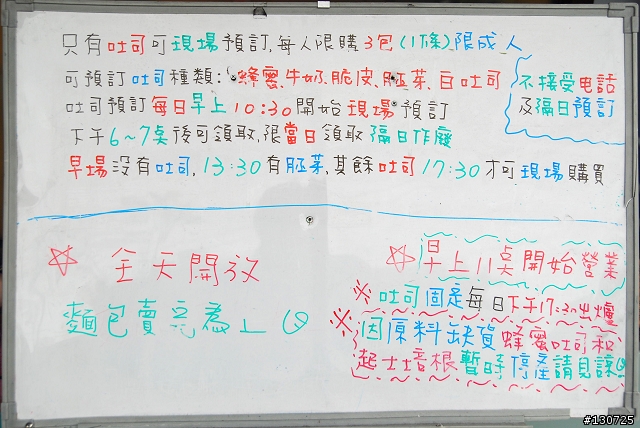 只有吐司可現場預訂,每人限購3包(1條)限成人
可預訂吐司種類:蜂蜜、牛奶、脆皮、胚芽、白吐司
不接受電話
及隔日預訂
吐司預訂每日早上10:30開始現場預訂
下午6~7點後可領取,限當日領取隔日作廢
早場沒有吐司,13:30有胚芽,其餘吐司17:30才可現場購買
☆全天開放
麵包賣完為止
☆早上11點開始營業
※吐司固定每日下午17:30出爐
※因原料缺貨蜂蜜吐司和
起士培根暫時停產請見諒
#130725